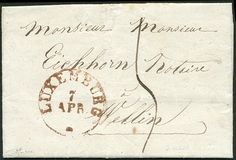 Monsieur Monsieur
Eichhorn Notaire
à
Wellin
LUXEMBURG
7
APR.
5